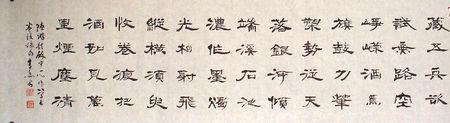 藏五兵欲
試無路空
崢嶸酒為
旗鼓筆刀
槊勢從天
落銀河傾
端溪石池
濃作墨燭
光相射飛
縱橫須臾
收卷復把
酒如見萬
里煙塵清